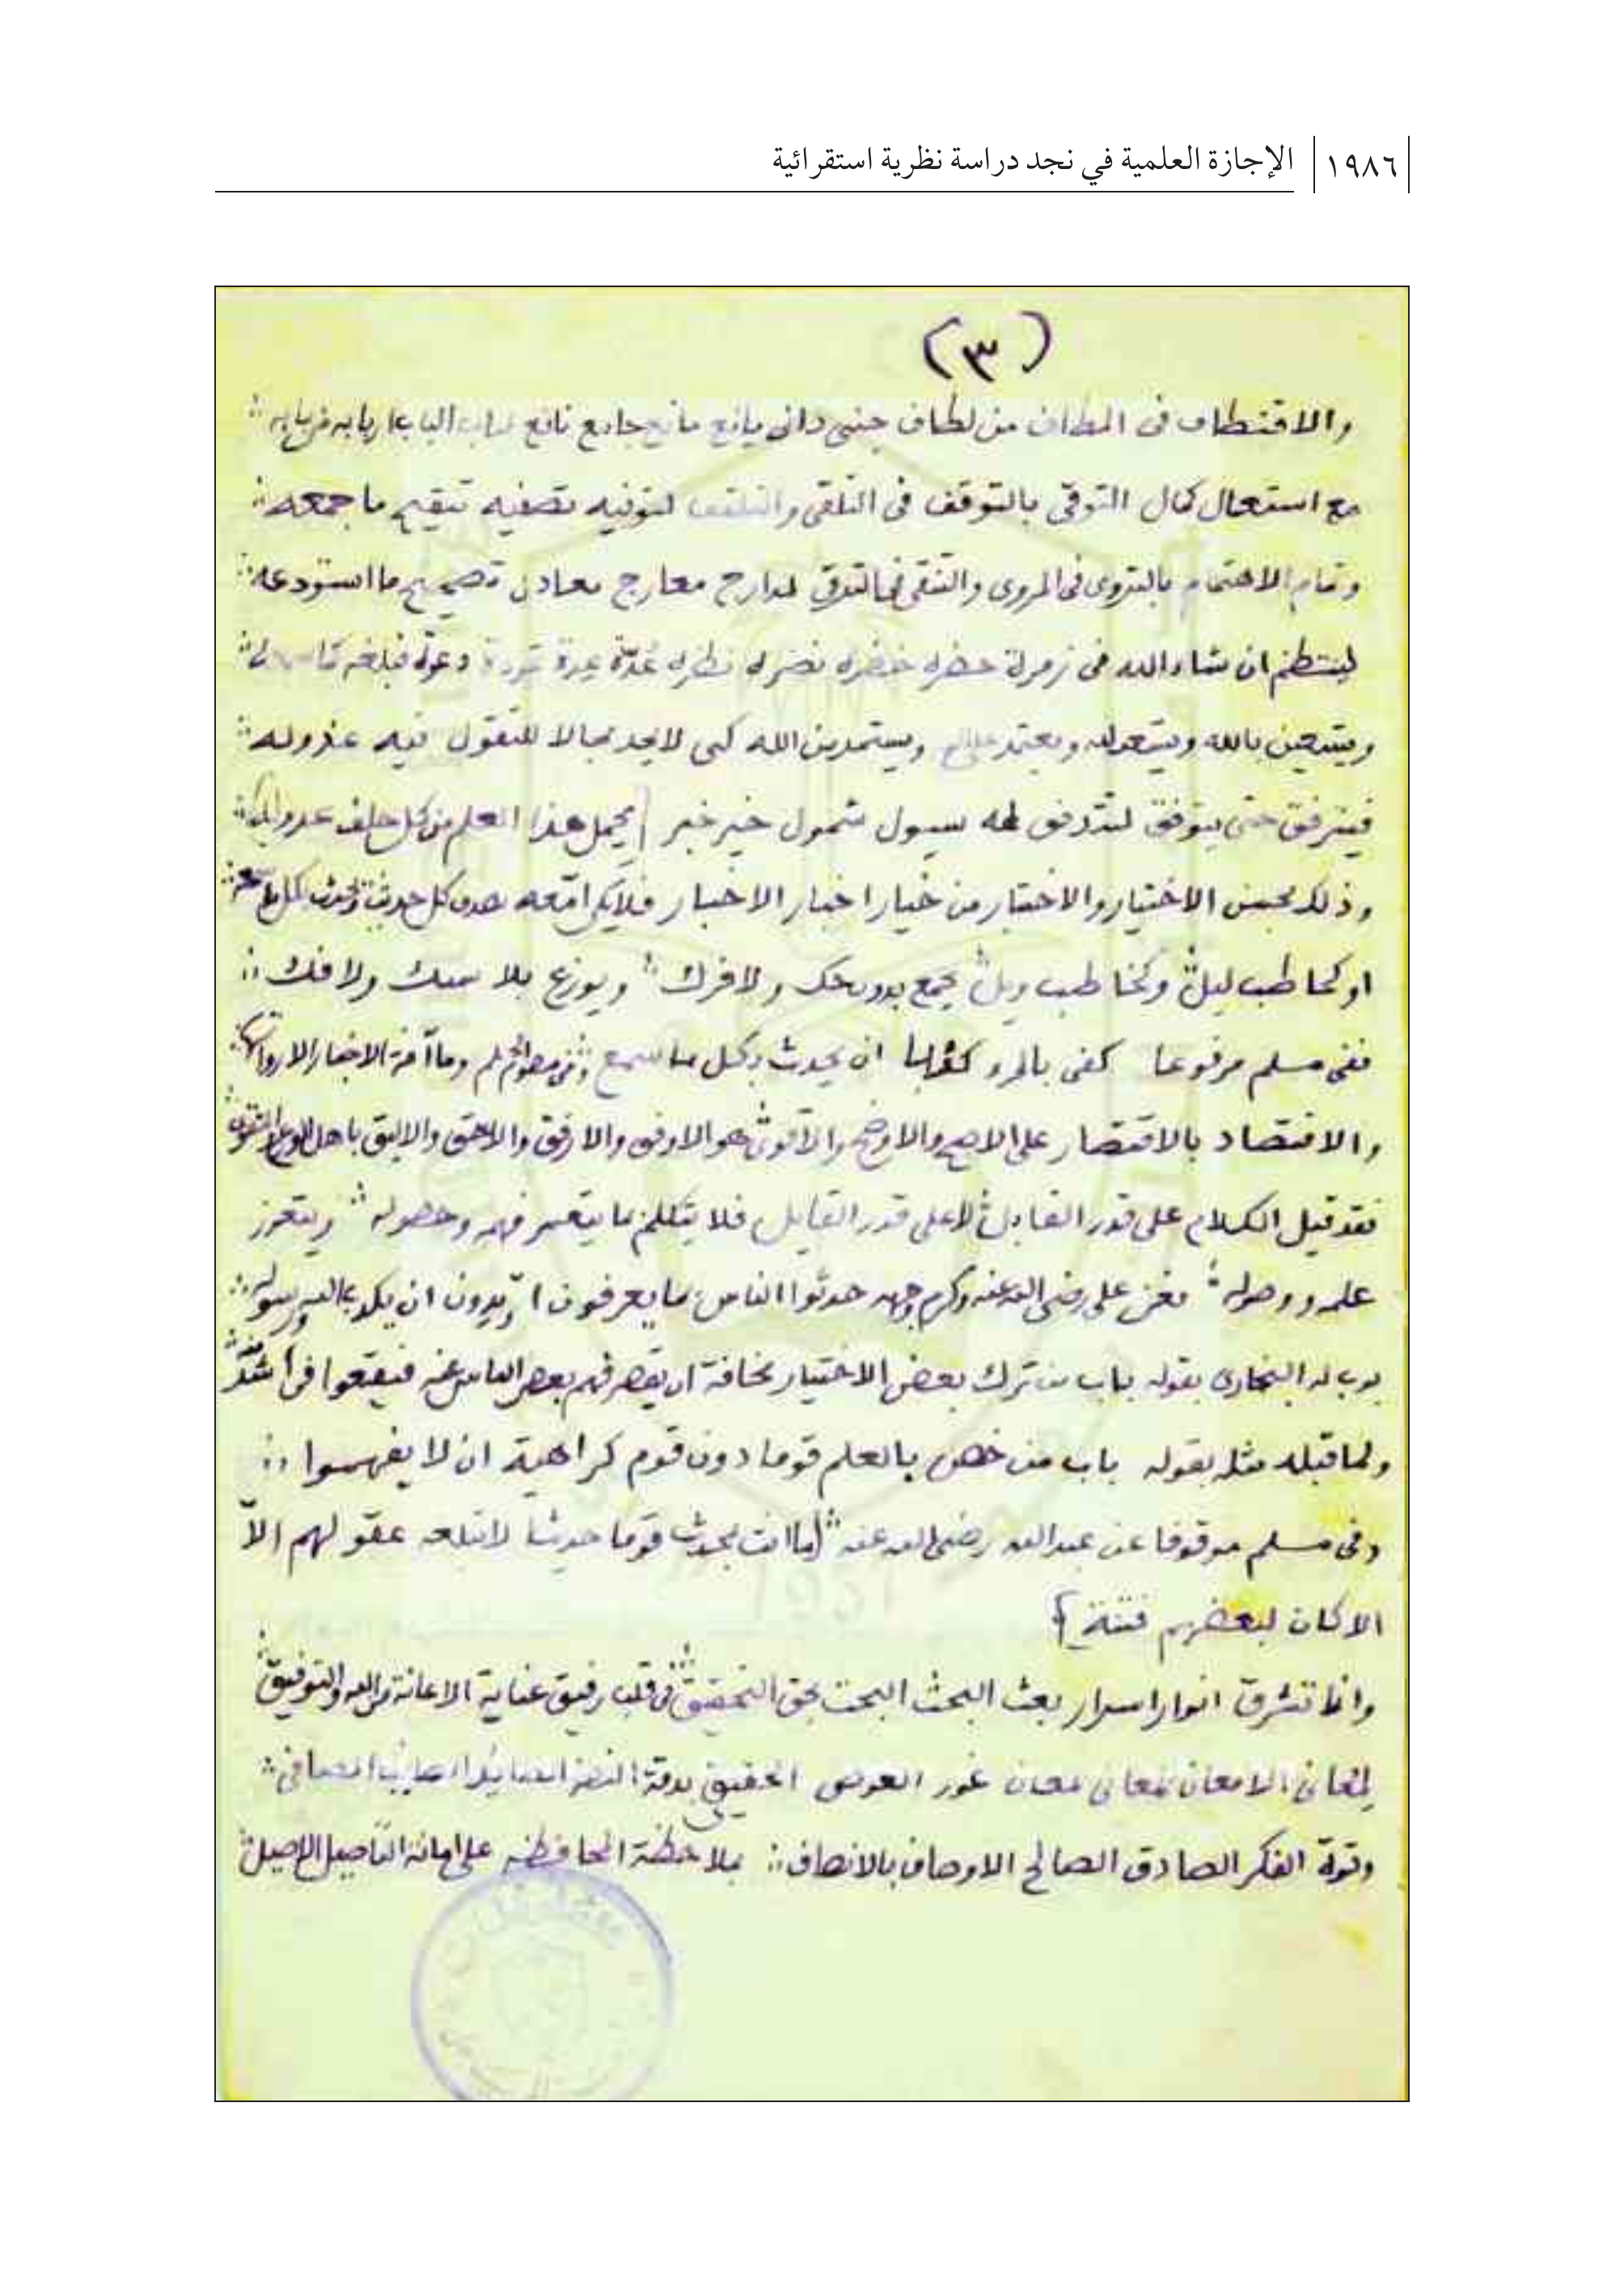 ١٩٨٦ الإجازة العلمية في نجد دراسة نظرية استقرائية
(٣)
والاقتطاف في المطاف من لطاف جنى دانى يانع مانع جامع نافع
مع استعمال كمال التوقى بالتوقف فى التلقى والتلقف لتوفيه تصفيه تنقيح ما جمعه
وتمام الاهتمام بالتروى فى المروى والتنقى فى الترقي لمدارج معارج تصحيح ما استودعه
لينتظم ان شاء الله فى زمرة خضره نضره دعوة
ويستعين بالله ويعتمد ويستمد من الله كى لا يجد مجالا للتقول فيه عذوله
فيترفق حتى يتوفق لتدفق له سيول شمول خير خبر يحمل هذا العلم من كل خلف عدوله
وذلك بحسن الاختيار والاختبار من خيار اخبار الاخبار فلا يكن امّعه
او كحاطب ليل وكخاطب ويل يجمع بدون حك ولا فرك ويوزع بلا سبك ولا فك
ففى مسلم مرفوعا كفى بالمرء ان يحدث بكل ما سمع وما آفة الاخبار الا رواتها
والاقتصاد بالاقتصار على الاصح والاوضح والاقوى هو الاوفق والارفق والاحق والاليق باهل
فقد قيل الكلام على قدر القابل لا على قدر القايل فلا يتكلم بما يتعسر فهمه وحصوله ويتعزز
علمه ووصوله فعن على رضى الله عنه وكرم وجهه حدثوا الناس بما يعرفون اتريدون ان يكذب الله ورسوله
بوب له البخارى بقوله باب من ترك بعض الاختيار مخافة ان يقصر فهم بعض الناس عنه فيقعوا فى اشد
ولما قبله مثله بقوله باب من خص بالعلم قوما دون قوم كراهية ان لا يفهموا
وفى مسلم موقوفا عن عبد الله رضى الله عنه ما انت بمحدث قوما حديثا لا تبلغه عقولهم الّا
الا كان لبعضهم فتنة
وانما تشرق انوار اسرار بعث البحث البحت بحق التحقيق فى قلب رفيق عناية الاعانة من الله والتوفيق
الامعان بمعانى غور الغوص الحقيقى بدقة النظر
وقوة الفكر الصادق الصالح الاوصاف بالانصاف بملاحظة المحافظه على امانة التاصيل الاصيل